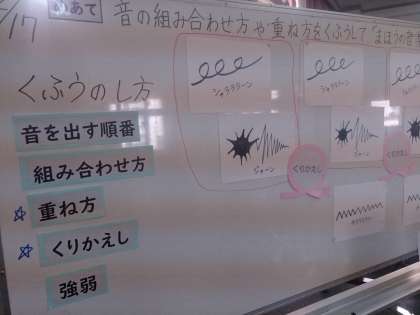 /17
めあて
音の組み合わせ方や重ね方をくふうして"まほうの音
くふうのし方
音を出す順番
組み合わせ方
☆ 重ね方
☆ くりかえし
強弱
シャラララーン
ジャーン
くりかえし
ジャーン